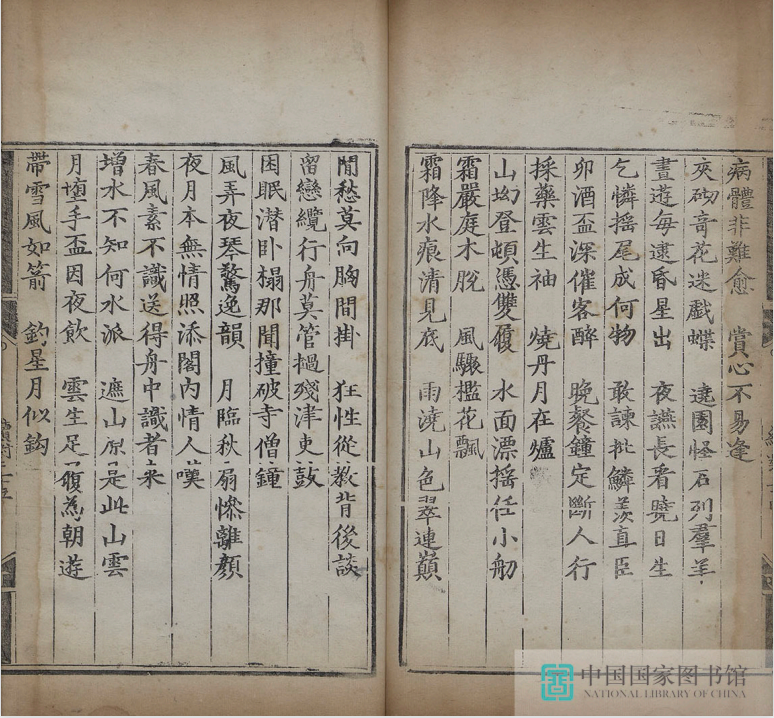 病體非難愈 賞心不易逢
夾砌奇花迷戲蝶 遶園怪石列羣羊
晝遊每逮昏星出 夜讌長看曉日生
乞憐搖尾成何物 敢諫批鱗羨直臣
卯酒盃深催客醉 晩餐鐘定斷人行
採藥雲生袖 燒丹月在爐
山坳登頓憑雙屐 水面漂搖任小舠
霜嚴庭木脫 風驟檻花飄
霜降水痕清見底 雨澆山色翠連巔
閒愁莫向胸間掛 狂性從教背後談
畱戀纜行舟莫管撾殘津吏鼓
困眠潛卧榻那聞撞破寺僧鐘
風弄夜琴驚逸韻 月臨秋扇慘離顏
夜月本無情照添閣內情人嘆
春風素不識送得舟中識者來
增水不知何水派 遮山原是此山雲
月墮手盃因夜飲 雲生足屐為朝遊
帶雪風如箭 釣星月似鈎
中国国家图书馆
NATIONAL LIBRARY OF CHINA